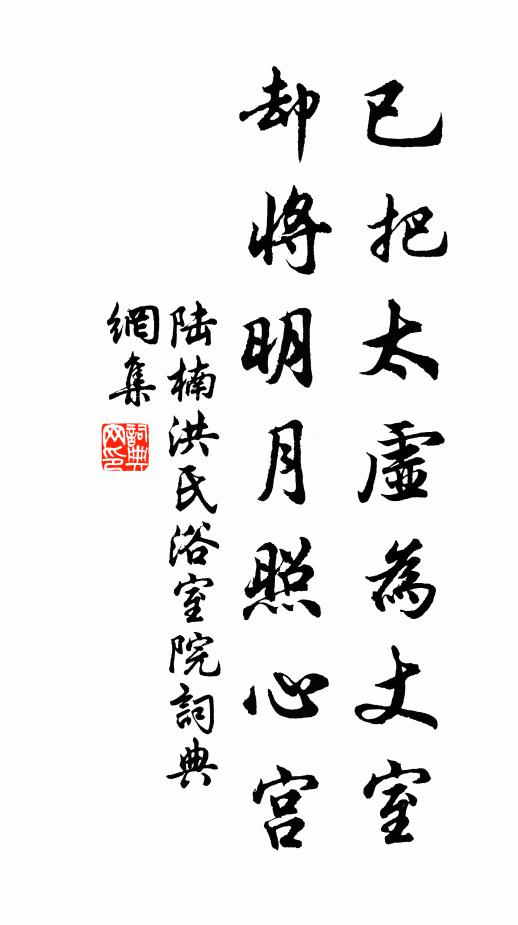 已把太虛為丈室
却將明月照心宮
陆楠洪氏浴室院詞典
網集
詞典網印